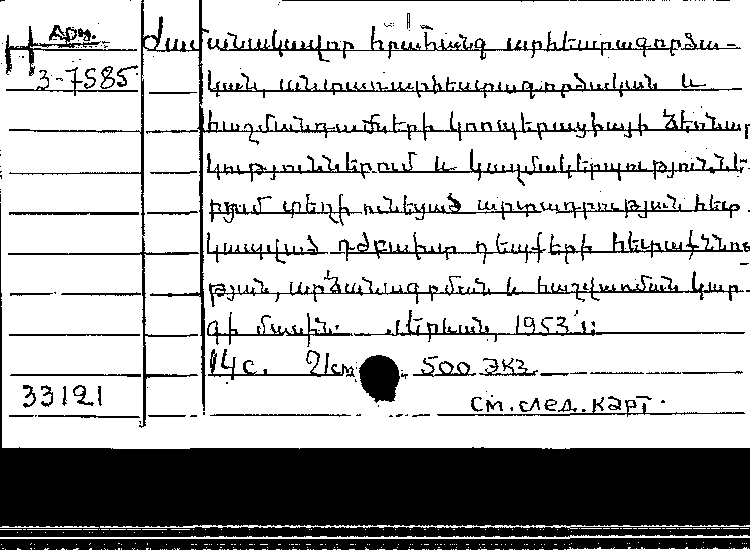 Арм.
Н
3-7585
Ժամանակավոր հրահանգ արհեստագործա-
կան, անտառարհեստագործական և
հաշմանդամների կոոպերացիայի ձեռնար
կություններում և կազմակերպություննե-
րում տեղի ունեցած արտադրության հետ
կապված դժբախտ դեպքերի հետաքննու
թյան, արձանագրման և հաշվառման կար
գի մասին. Երևան, 1953 թ:
14 с. 21 см 500 экз.
33121
см. след. карт.